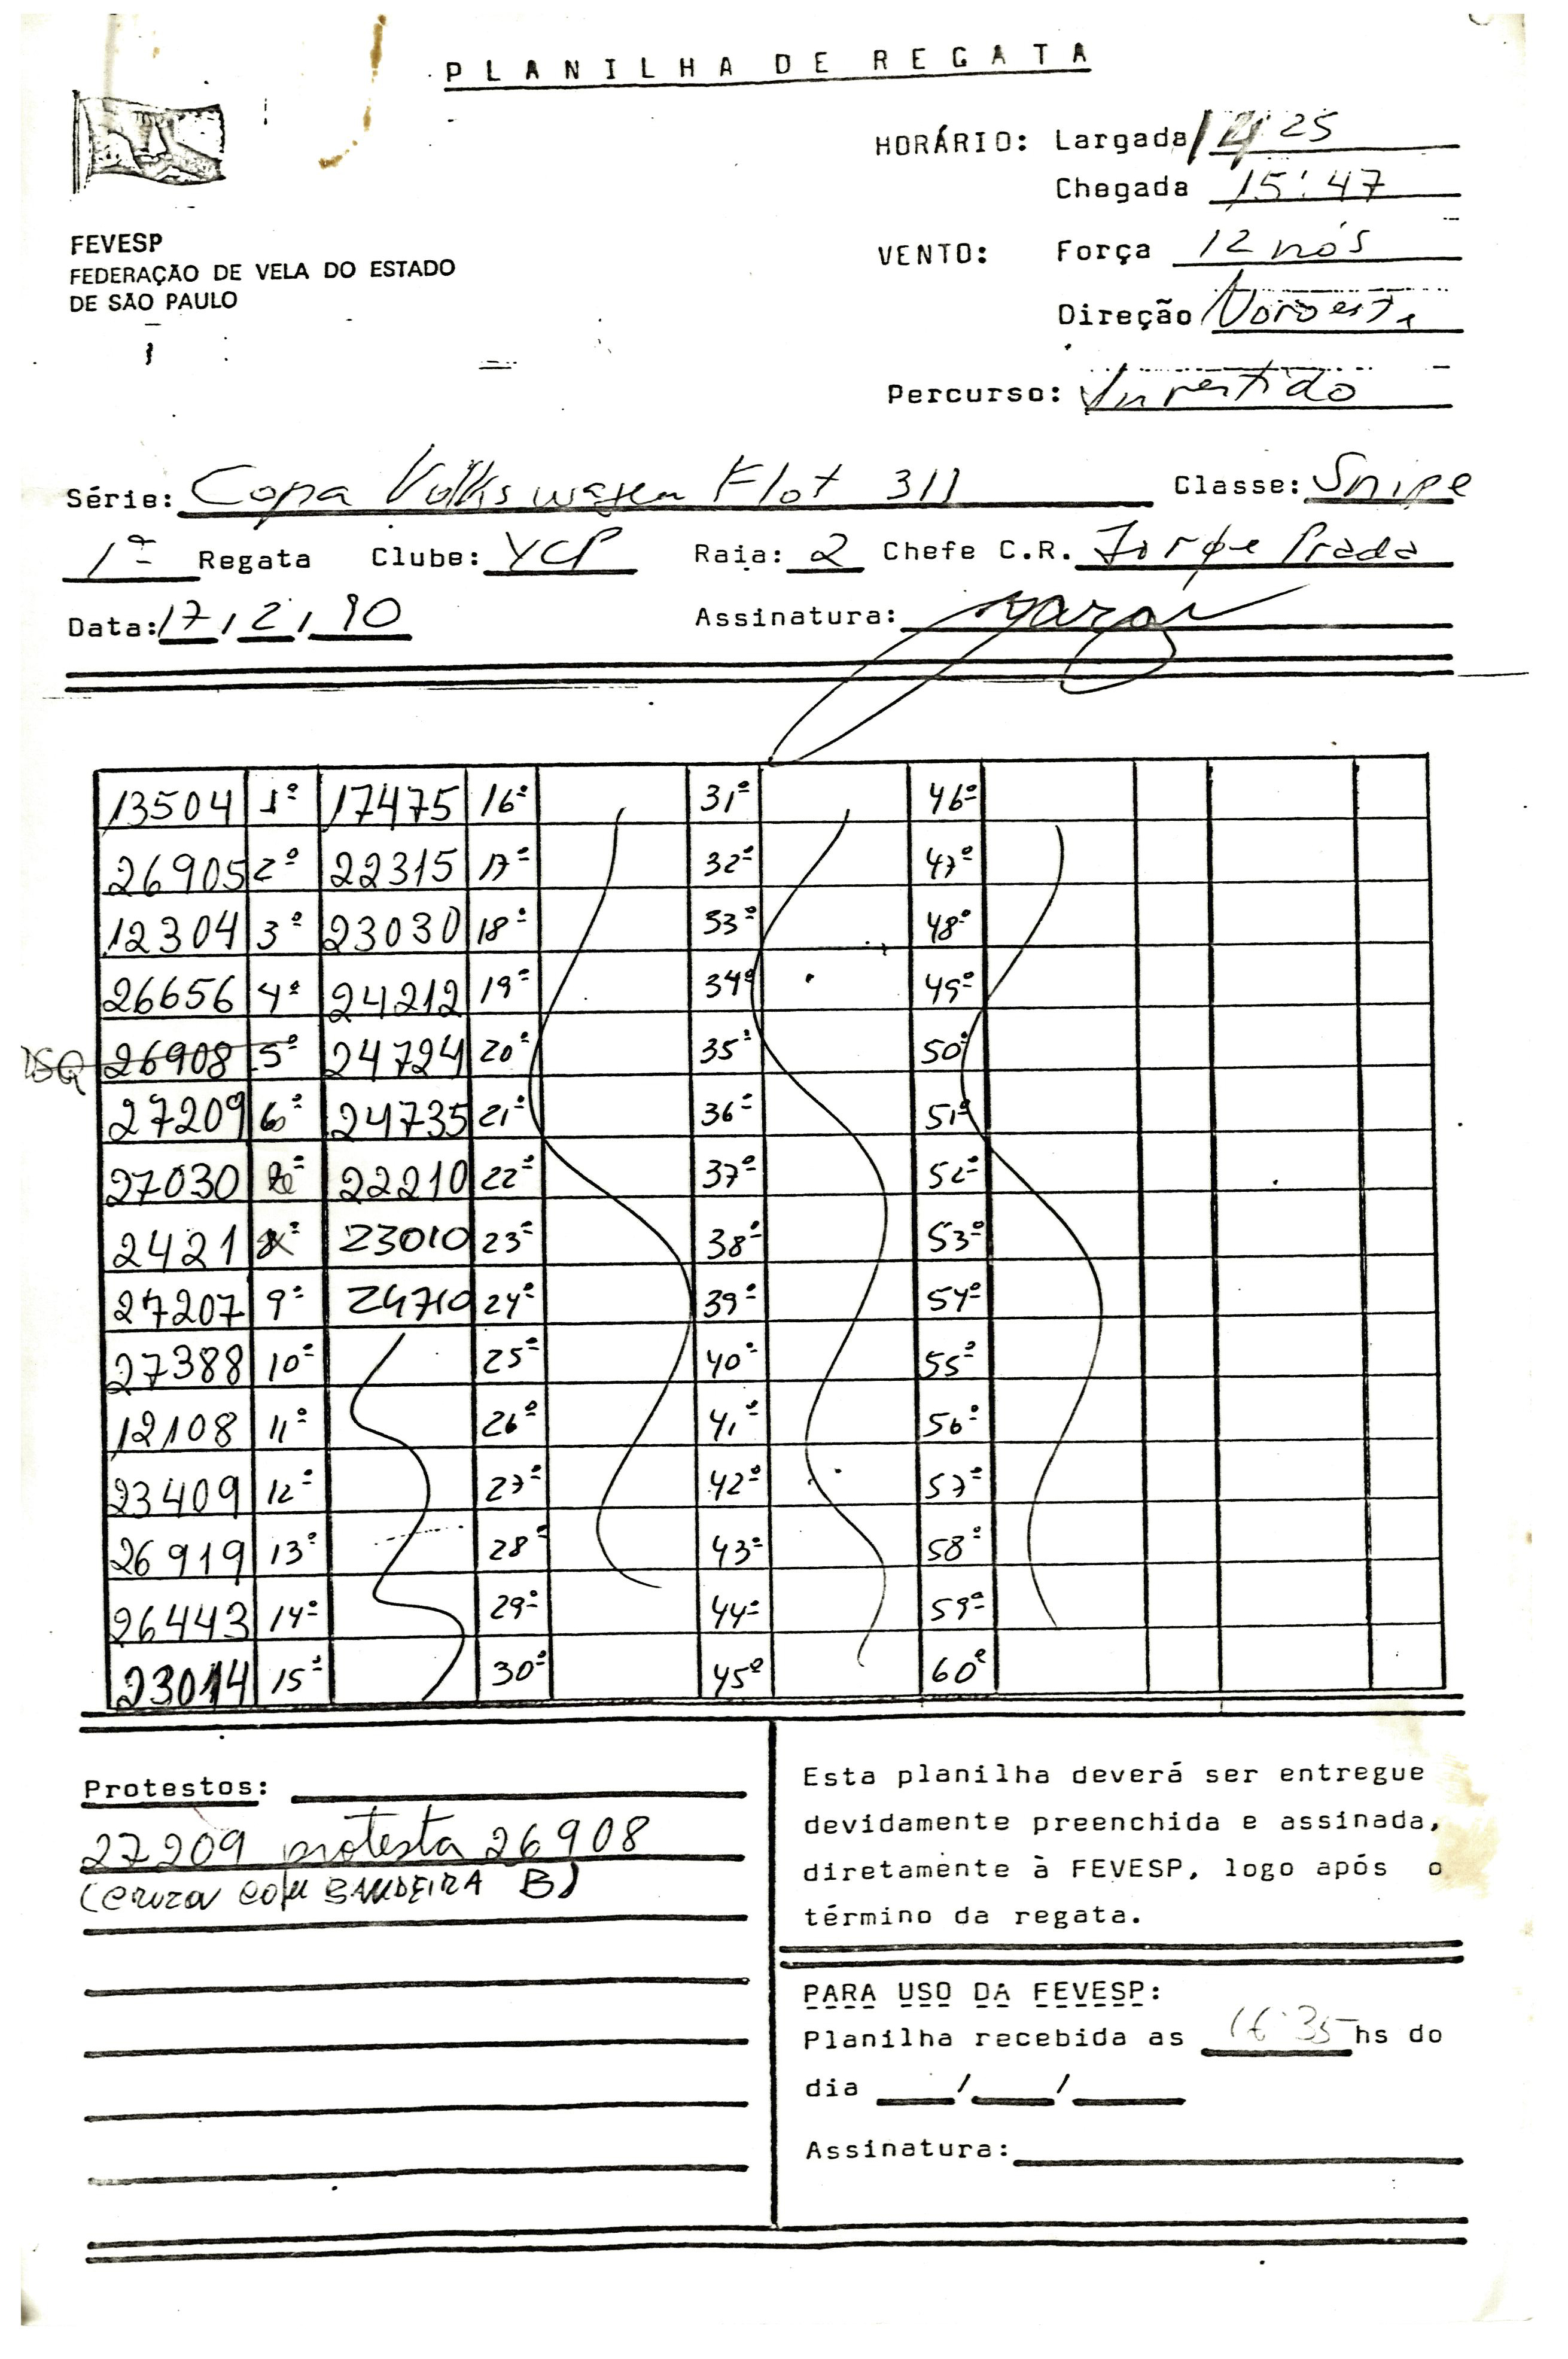 PLANILHA DE REGATA
HORÁRIO: Largada 14 25
Chegada 15:47
FEVESP
FEDERAÇÃO DE VELA DO ESTADO
DE SÃO PAULO
VENTO: Força 12 nós
Direção Noroeste
Percurso: Invertido
Série: Copa Volkswagen Flot 311 Classe: Snipe
1ª Regata Clube: YCP Raia: 2 Chefe C.R. Jorge Prada
Data: 17/2/90 Assinatura:
13504 1º 17475 16º 31º 46º
26905 2º 22315 17º 32º 47º
12304 3º 23030 18º 33º 48º
26656 4º 24212 19º 34º 49º
DSQ 26908 5º 24724 20º 35º 50º
27209 6º 24735 21º 36º 51º
27030 22210 22º 37º 52º
2421 23010 23º 38º 53º
27207 9º 24710 24º 39º 54º
27388 10º 25º 40º 55º
12108 11º 26º 41º 56º
23409 12º 27º 42º 57º
26919 13º 28º 43º 58º
26443 14º 29º 44º 59º
23014 15º 30º 45º 60º
Protestos:
27209 protesta 26908
(cruzou com BANDEIRA B)
Esta planilha deverá ser entregue
devidamente preenchida e assinada,
diretamente à FEVESP, logo após o
término da regata.
PARA USO DA FEVESP:
Planilha recebida as 16:35 hs do
dia / /
Assinatura: